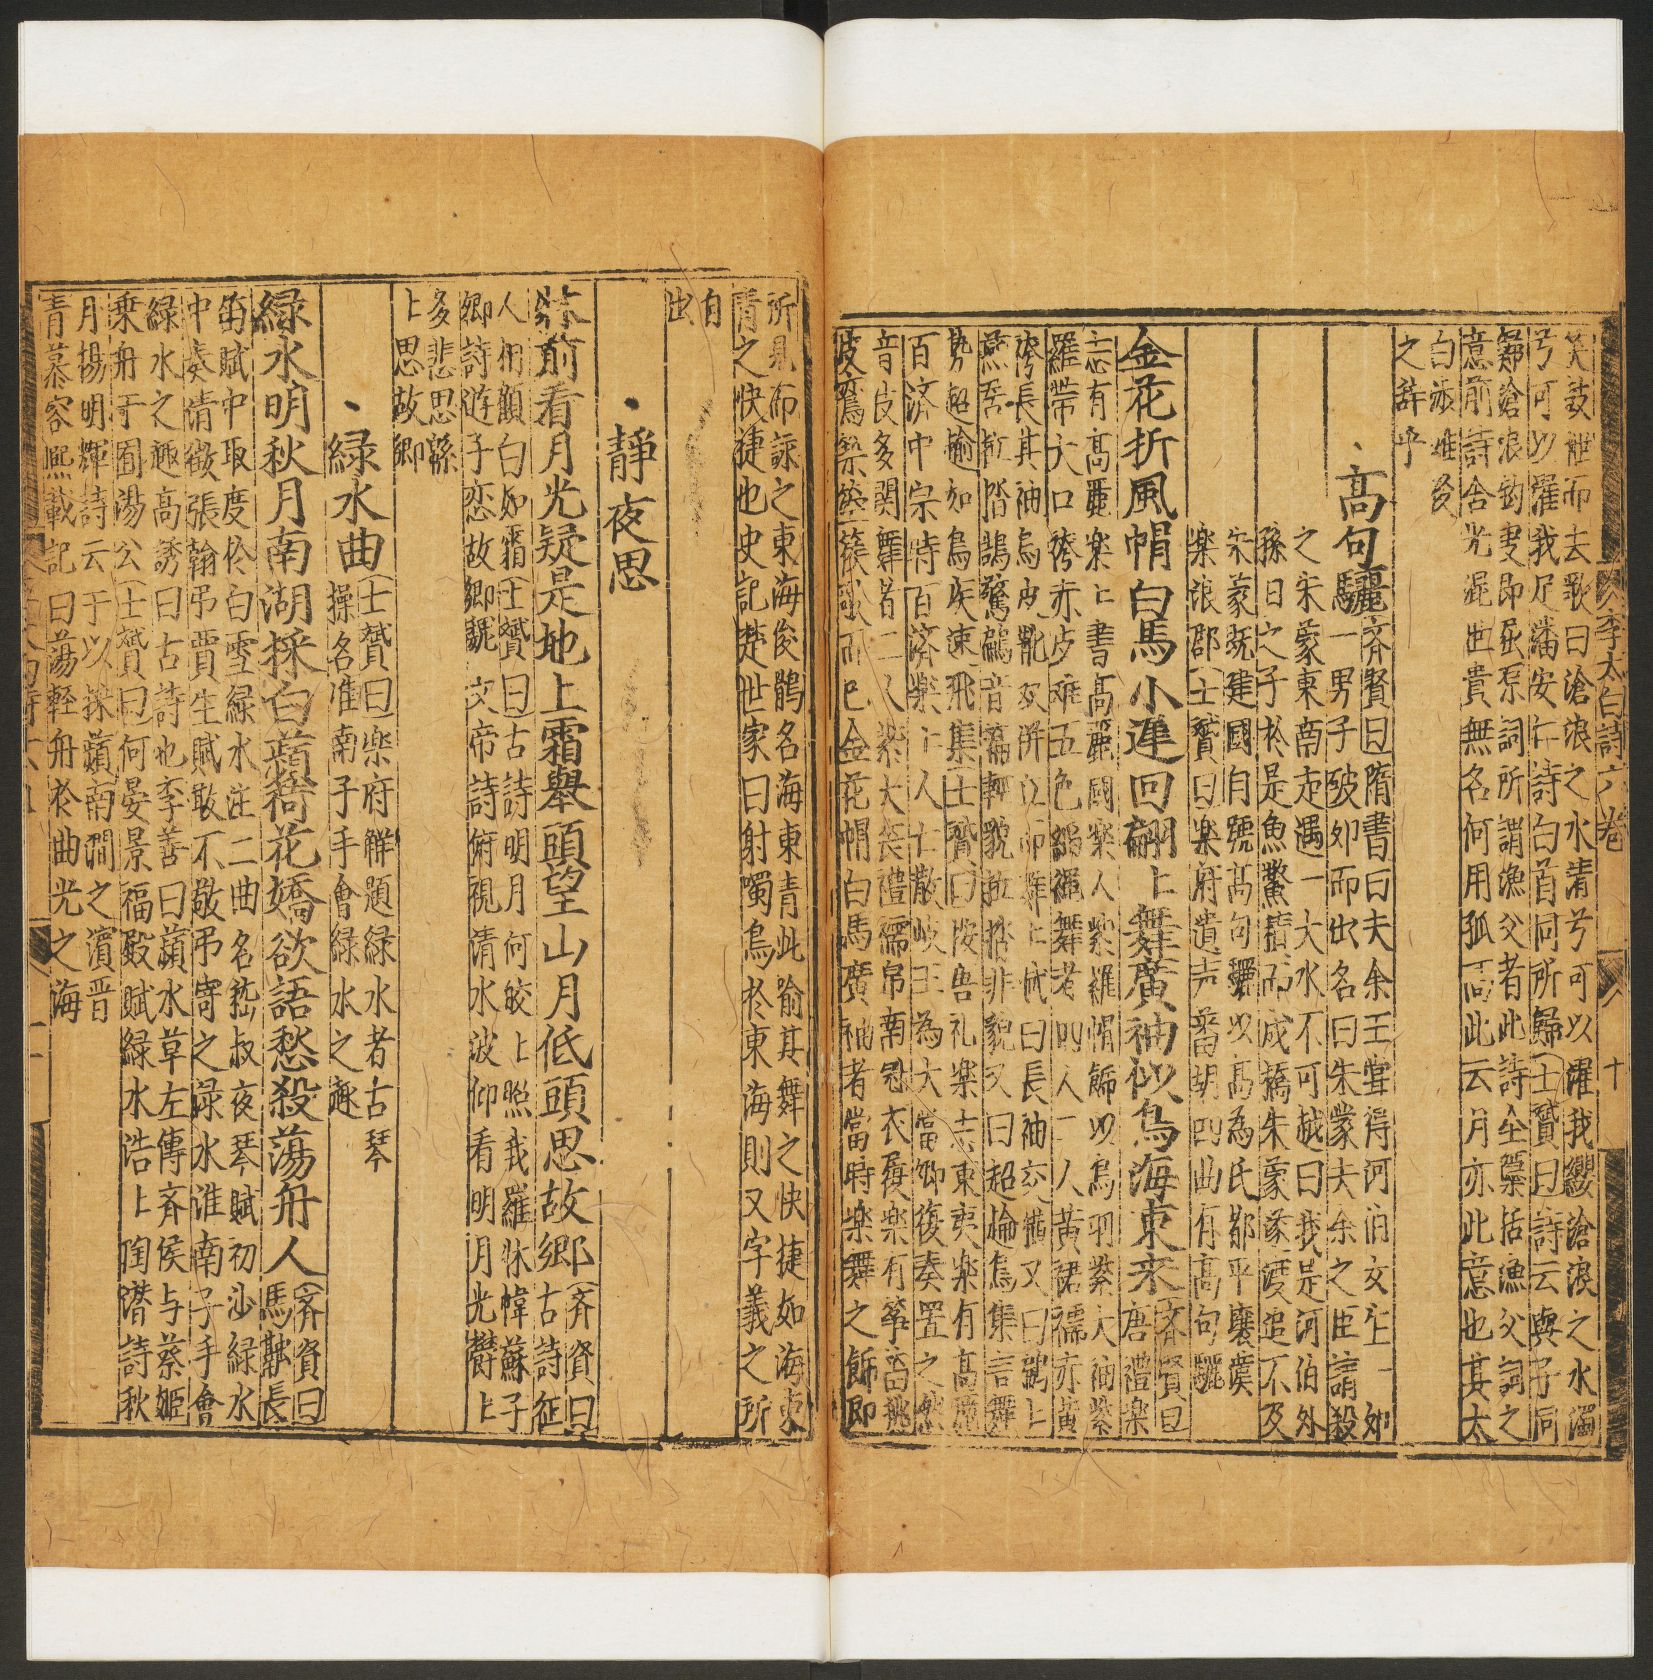 笑鼓枻而去歌曰滄浪之水清兮可以濯我纓滄浪之水濁
兮可以濯我足潘安仁詩白首同所歸士贇曰詩云與子同
歸滄浪釣叟即屈原詞所謂漁父者此詩全櫽括漁父詞之
意前詩含光混世貴無名何用孤高此云月亦此意也其太
白放雄後
之辭乎
高句驪
齊賢曰隋書曰夫余王嘗得河伯女
一男子破夘而出名曰朱蒙夫余之臣請殺
之朱蒙東南走遇一大水不可越曰我是河伯外
孫日之子於是魚鱉積而成橋朱蒙遂渡追不及
朱蒙既建國自號高句驪以高為氏都平壤漢
樂浪郡士贇曰樂府遺声番胡四曲有高句驪
金花折風帽白馬小遲回翩上舞廣袖似鳥海東來
齊賢曰
唐禮樂
志有高麗楽上書高麗國楽人紫羅帽飾以鳥羽紫大袖紫
羅帶大口袴赤皮𩌊五色縚繩舞者四人二人黃裙襦赤黃
袴長其袖烏皮靴双併立而舞
百濟中宗時百濟楽工人亡散岐王為大常卿復奏置之然
音伎多闕舞者二人紫大袖裙襦章甫冠衣履楽有筝笛桃
皮篳篥箜篌歌而已金花帽白馬廣袖者當時楽舞之飾即
所見而詠之東海俊鶻名海東青此喻其舞之快捷如海東
青之快捷也史記楚世家曰射噣鳥於東海則又字義之所
自
出
靜夜思
牀前看月光疑是地上霜舉頭望山月低頭思故鄉
齊賢曰
古詩征
人相顧白如霜士贇曰古詩明月何皎上照我羅牀幃蘇子
卿詩遊子恋故鄉魏文帝詩俯視清水波仰看明月光鬱上
多悲思緜
上思故鄉
綠水曲
士贇曰楽府解題綠水者古琴
操名淮南子手會綠水之趣
綠水明秋月南湖採白蘋荷花嬌欲語愁殺蕩舟人
齊賢曰
馬融長
笛賦中取度於白雪綠水注二曲名嵇叔夜琴賦初涉綠水
中奏清徵張翰弔賈生賦敢不敬弔寄之淥水淮南子手會
綠水之趣高誘曰古詩也李善曰蘋水草左傳齊侯与蔡姬
乗舟于囿蕩公士贇曰何晏景福殿賦綠水浩上陶潛詩秋
月揚明輝詩云于以採蘋南澗之濱晋
青慕容熙載記曰蕩輕舟於曲光之海
李太白詩六卷
十